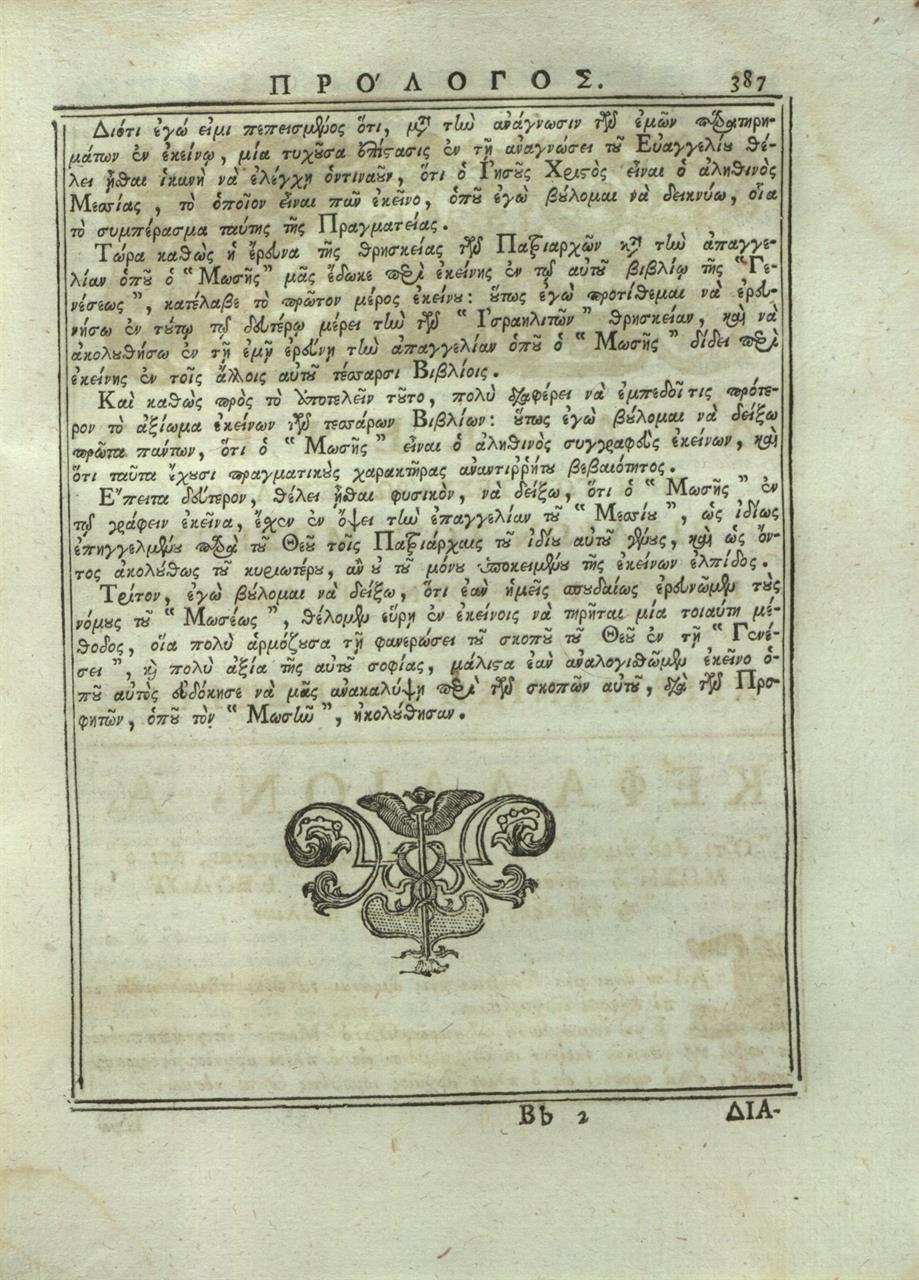 ΠΡΟ'ΛΟΓΟΣ. 387
Διότι ἐγώ εἰμι πεπεισμένος ὅτι, μετὰ τὴν ἀνάγνωσιν τῶν ἐμῶν παρατηρη-
μάτων ἐν ἐκείνῳ, μία τυχοῦσα ἐπίτασις ἐν τῇ ἀναγνώσει τοῦ Εὐαγγελίου θέ-
λει ἦσθαι ἱκανὴ νὰ ἐλέγχῃ ὁντιναοῦν, ὅτι ὁ Ἰησοῦς Χριστὸς εἶναι ὁ ἀληθινὸς
Μεσσίας, τὸ ὁποῖον εἶναι πᾶν ἐκεῖνο, ὁποῦ ἐγὼ βούλομαι νὰ δεικνύω, οἷα
τὸ συμπέρασμα ταύτης τῆς Πραγματείας.
Τώρα καθὼς ἡ ἔρευνα τῆς θρησκείας τῶν Πατριαρχῶν κατὰ τὴν ἀπαγγε-
λίαν ὁποῦ ὁ "Μωσῆς" μᾶς ἔδωκε περὶ ἐκείνης ἐν τῷ αὐτοῦ βιβλίῳ τῆς "Γε-
νέσεως", κατέλαβε τὸ πρῶτον μέρος ἐκείνου: οὕτως ἐγὼ προτίθεμαι νὰ ἐρευ-
νήσω ἐν τούτῳ τῷ δευτέρῳ μέρει τὴν τῶν "Ἰσραηλιτῶν" θρησκείαν, καὶ νὰ
ἀκολουθήσω ἐν τῇ ἐμῇ ἐρεύνῃ τὴν ἀπαγγελίαν ὁποῦ ὁ "Μωσῆς" δίδει περὶ
ἐκείνης ἐν τοῖς ἄλλοις αὐτοῦ τέσσαρσι Βιβλίοις.
Καὶ καθὼς πρὸς τὸ ὑποτελεῖν τοῦτο, πολὺ διαφέρει νὰ ἐμπεδοῖ τις πρότε-
ρον τὸ ἀξίωμα ἐκείνων τῶν τεσσάρων Βιβλίων: οὕτως ἐγὼ βούλομαι νὰ δείξω
πρῶτα πάντων, ὅτι ὁ "Μωσῆς" εἶναι ὁ ἀληθινὸς συγγραφεὺς ἐκείνων, καὶ
ὅτι ταῦτα ἔχουσι πραγματικοὺς χαρακτῆρας ἀναντιῤῥήτου βεβαιότητος.
Ἔπειτα δεύτερον, θέλει ἦσθαι φυσικὸν, νὰ δείξω, ὅτι ὁ "Μωσῆς" ἐν
τῷ γράφειν ἐκεῖνα, ἔχεν ἐν ὄψει τὴν ἐπαγγελίαν τοῦ "Μεσσίου", ὡς ἰδίως
ἐπηγγελμένου παρὰ τοῦ Θεοῦ τοῖς Πατριάρχαις τοῦ ἰδίου αὐτοῦ γένους, καὶ ὡς ὄν-
τος ἀκολούθως τοῦ κυριωτέρου, ἂν οὐ τοῦ μόνου ὑποκειμένου τῆς ἐκείνων ἐλπίδος.
Τρίτον, ἐγὼ βούλομαι νὰ δείξω, ὅτι ἐὰν ἡμεῖς σπουδαίως ἐρευνῶμεν τοὺς
νόμους τοῦ "Μωσέως", θέλομεν εὕρῃ ἐν ἐκείνοις νὰ τηρῆται μία τοιαύτη μέ-
θοδος, οἵα πολὺ ἁρμόζουσα τῇ φανερώσει τοῦ σκοποῦ τοῦ Θεοῦ ἐν τῇ "Γενέ-
σει", καὶ πολὺ ἀξία τῆς αὐτοῦ σοφίας, μάλιστα ἐὰν ἀναλογισθῶμεν ἐκεῖνο ὁ-
ποῦ αὐτὸς εὐδόκησε νὰ μᾶς ἀνακαλύψῃ περὶ τῶν σκοπῶν αὐτοῦ, διὰ τῶν Προ-
φητῶν, ὁποῦ τὸν "Μωσῆν", ἠκολούθησαν.
Bb 2 ΔΙΑ-